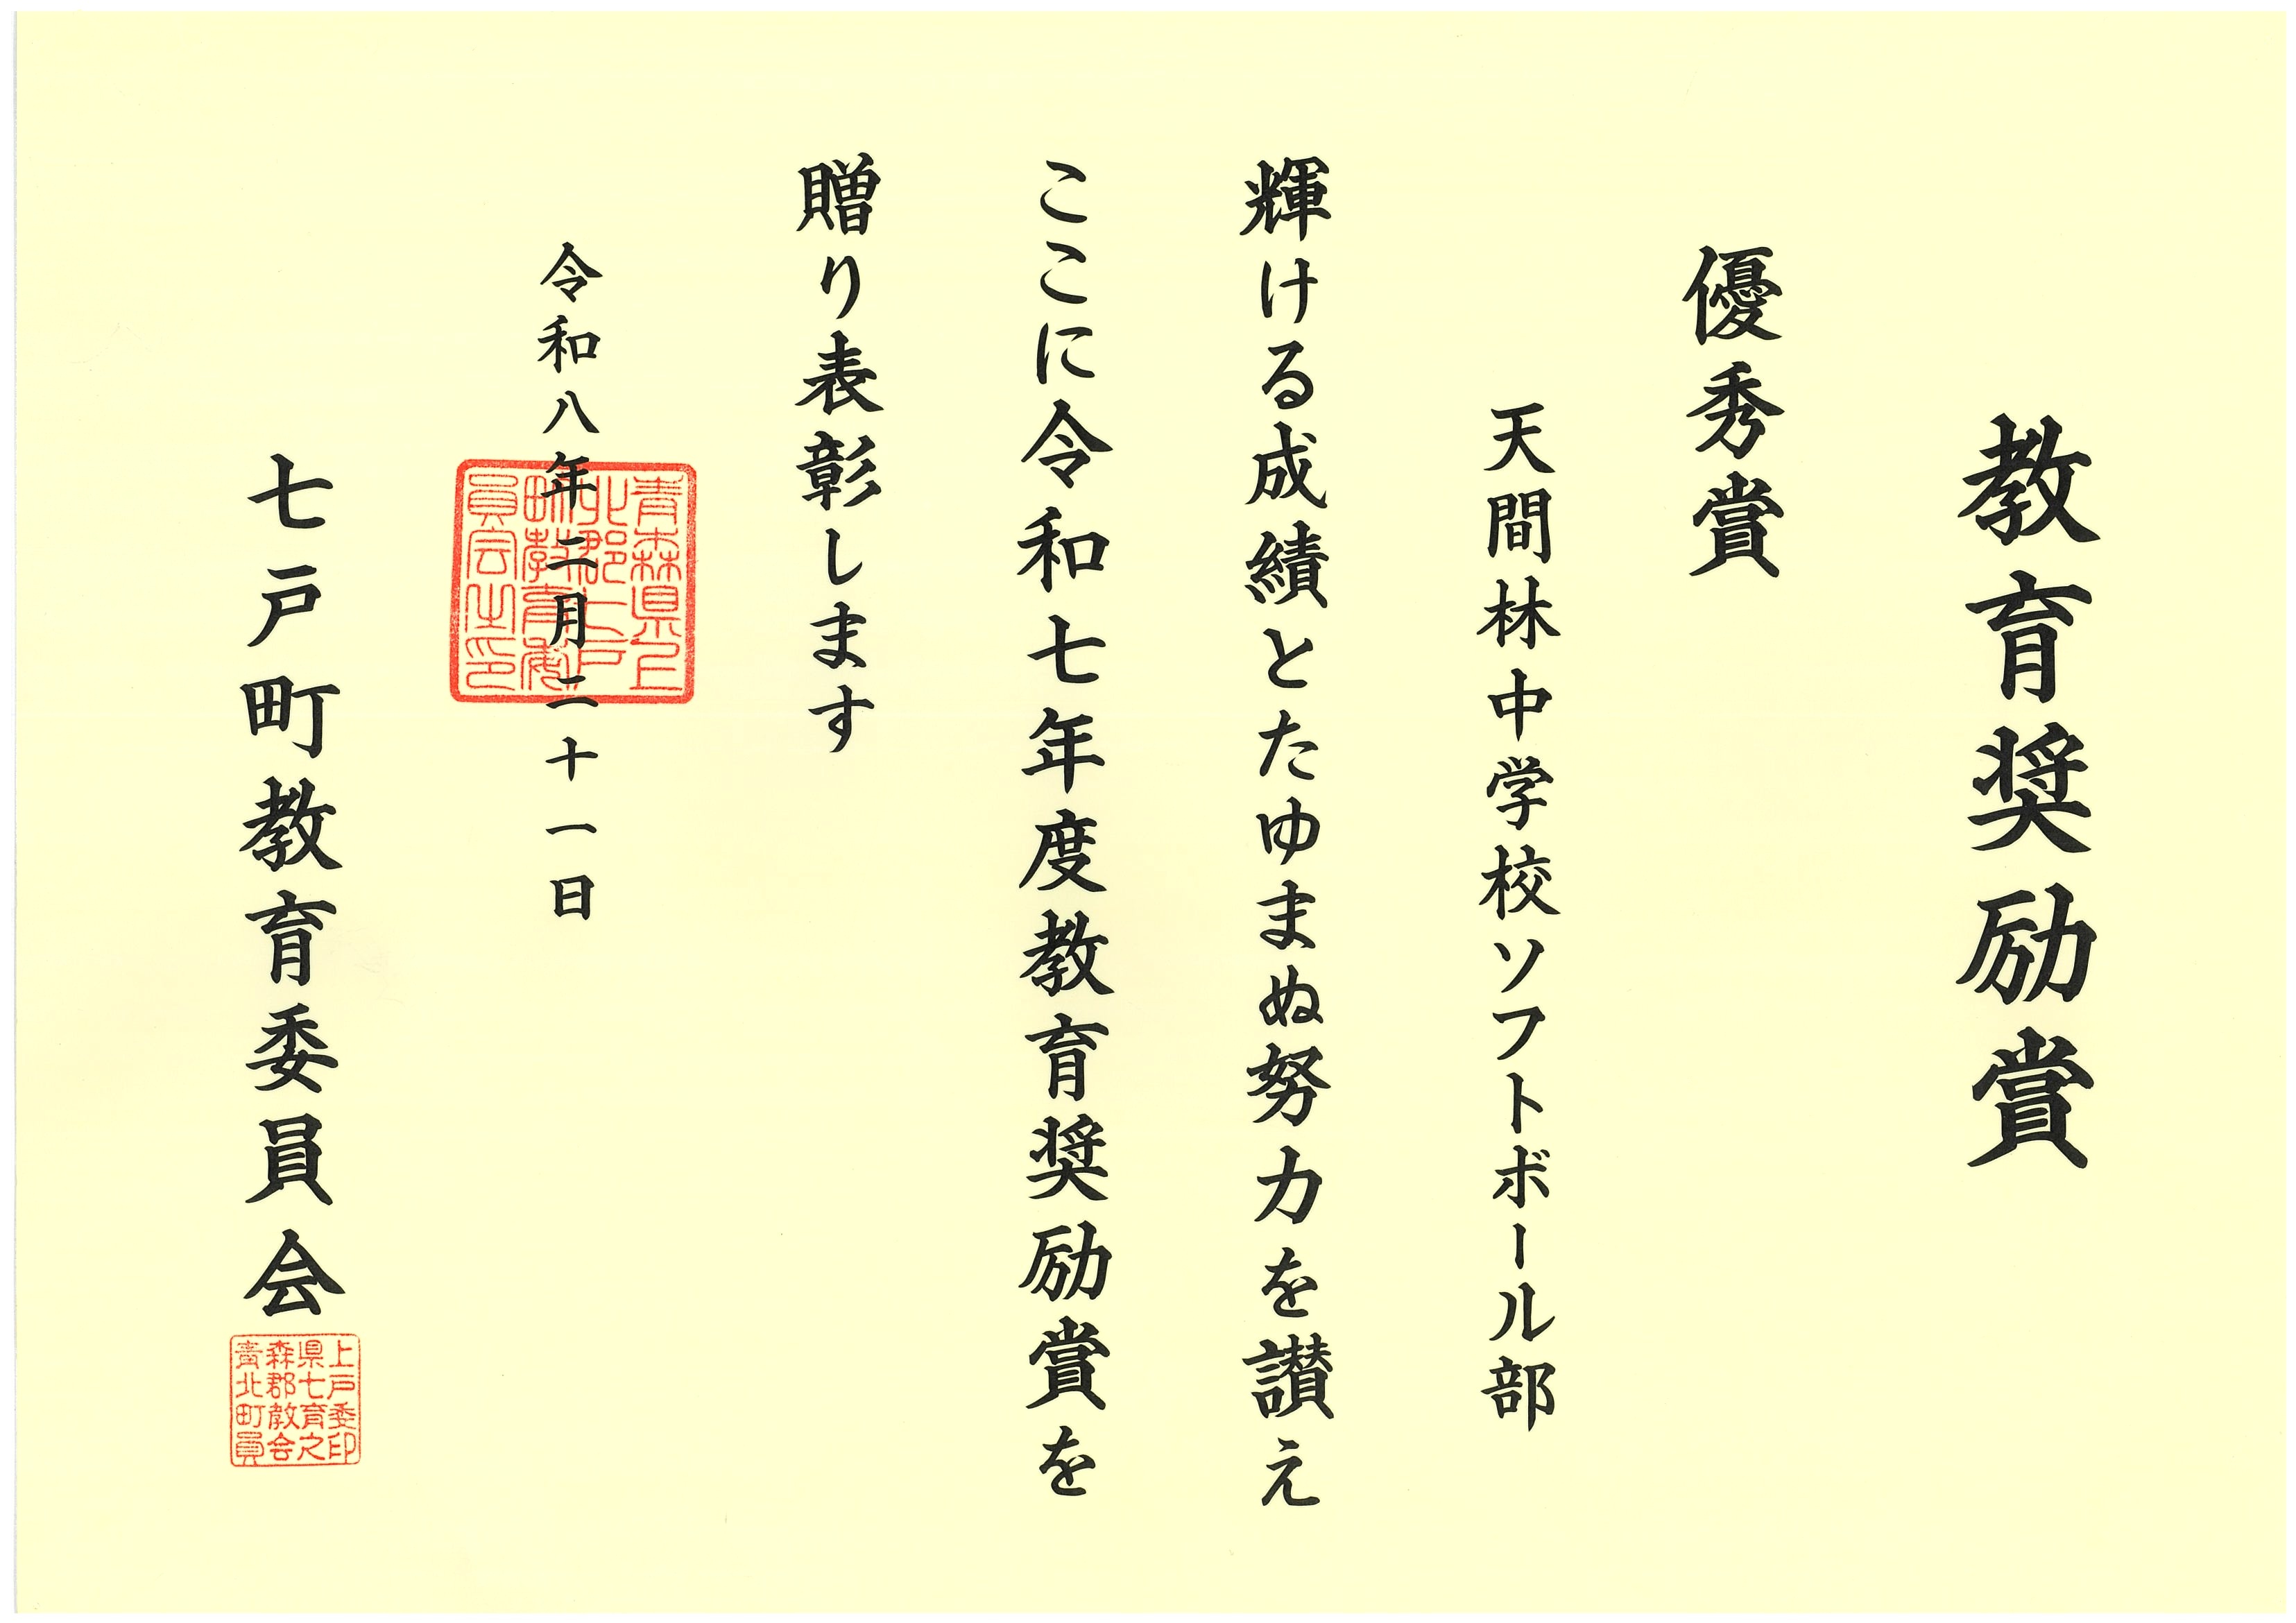 教育奨励賞
優秀賞
天間林中学校ソフトボール部
輝ける成績とたゆまぬ努力を讃え
ここに令和七年度教育奨励賞を
贈り表彰します
令和八年二月二十一日
青森県上
北郡七戸
町教育委
員会之印
七戸町教育委員会
上戸委印
県七育之
森郡教会
青北町員